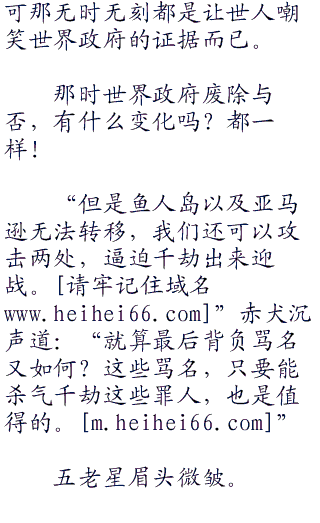 可那无时无刻都是让世人嘲
笑世界政府的证据而已。
那时世界政府废除与
否，有什么变化吗？都一
样！
“但是鱼人岛以及亚马
逊无法转移，我们还可以攻
击两处，逼迫千劫出来迎
战。[请牢记住域名
www.heihei66.com]”赤犬沉
声道：“就算最后背负骂名
又如何？这些骂名，只要能
杀气千劫这些罪人，也是值
得的。[m.heihei66.com]”
五老星眉头微皱。